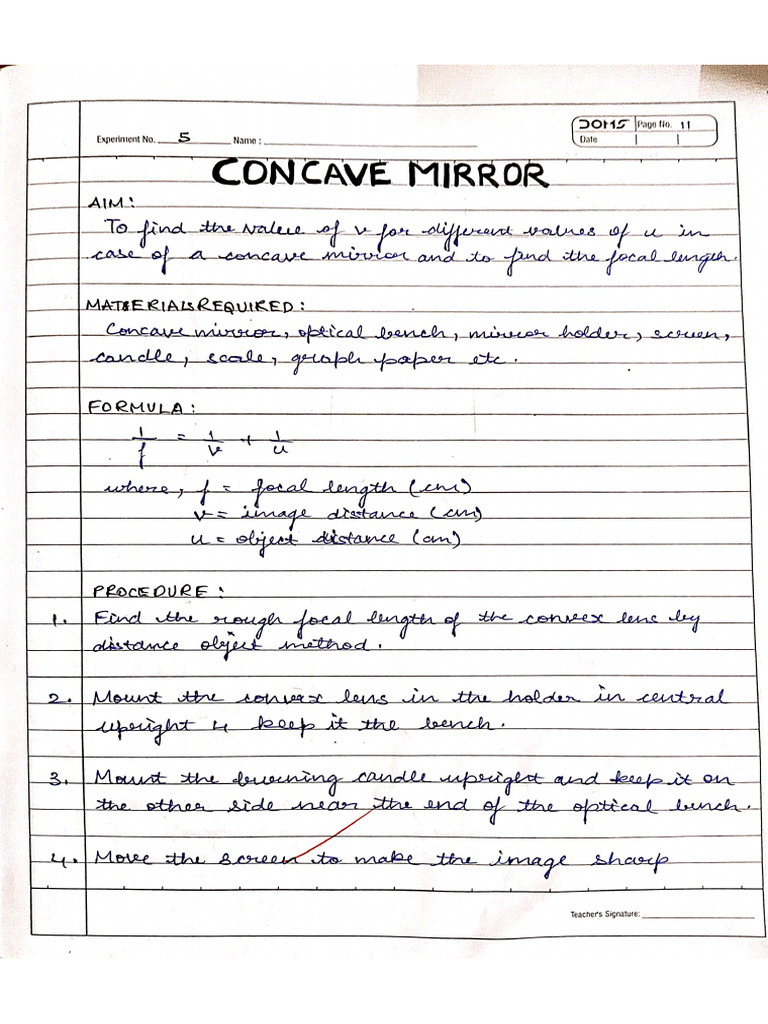 DOMS Page No. 11
Experiment No. 5 Name :
Date
CONCAVE MIRROR
AIM:
To find the value of v for different values of u in
case of a concave mirror and to find the focal length.
MATERIALS REQUIRED:
Concave mirror, optical bench, mirror holder, screen,
candle, scale, graph paper etc.
FORMULA:
1/f = 1/v + 1/u
where, f = focal length (cm)
v = image distance (cm)
u = object distance (cm)
PROCEDURE:
1. Find the rough focal length of the convex lens by
distance object method.
2. Mount the convex lens in the holder in central
upright & keep it the bench.
3. Mount the burning candle upright and keep it on
the other side near the end of the optical bench.
4. Move the screen to make the image sharp
Teacher's Signature: